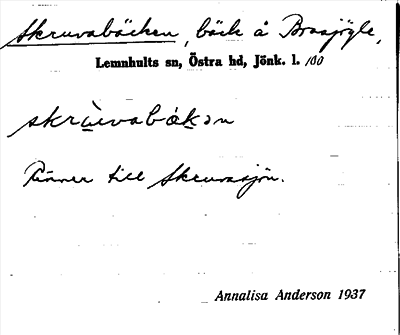 Skruvabäcken, bäck å Brosjögle,
Lemnhults sn, Östra hd, Jönk. l. 100
skrùevabäkən
Rinner till Skruvasjön.
Annalisa Anderson 1937